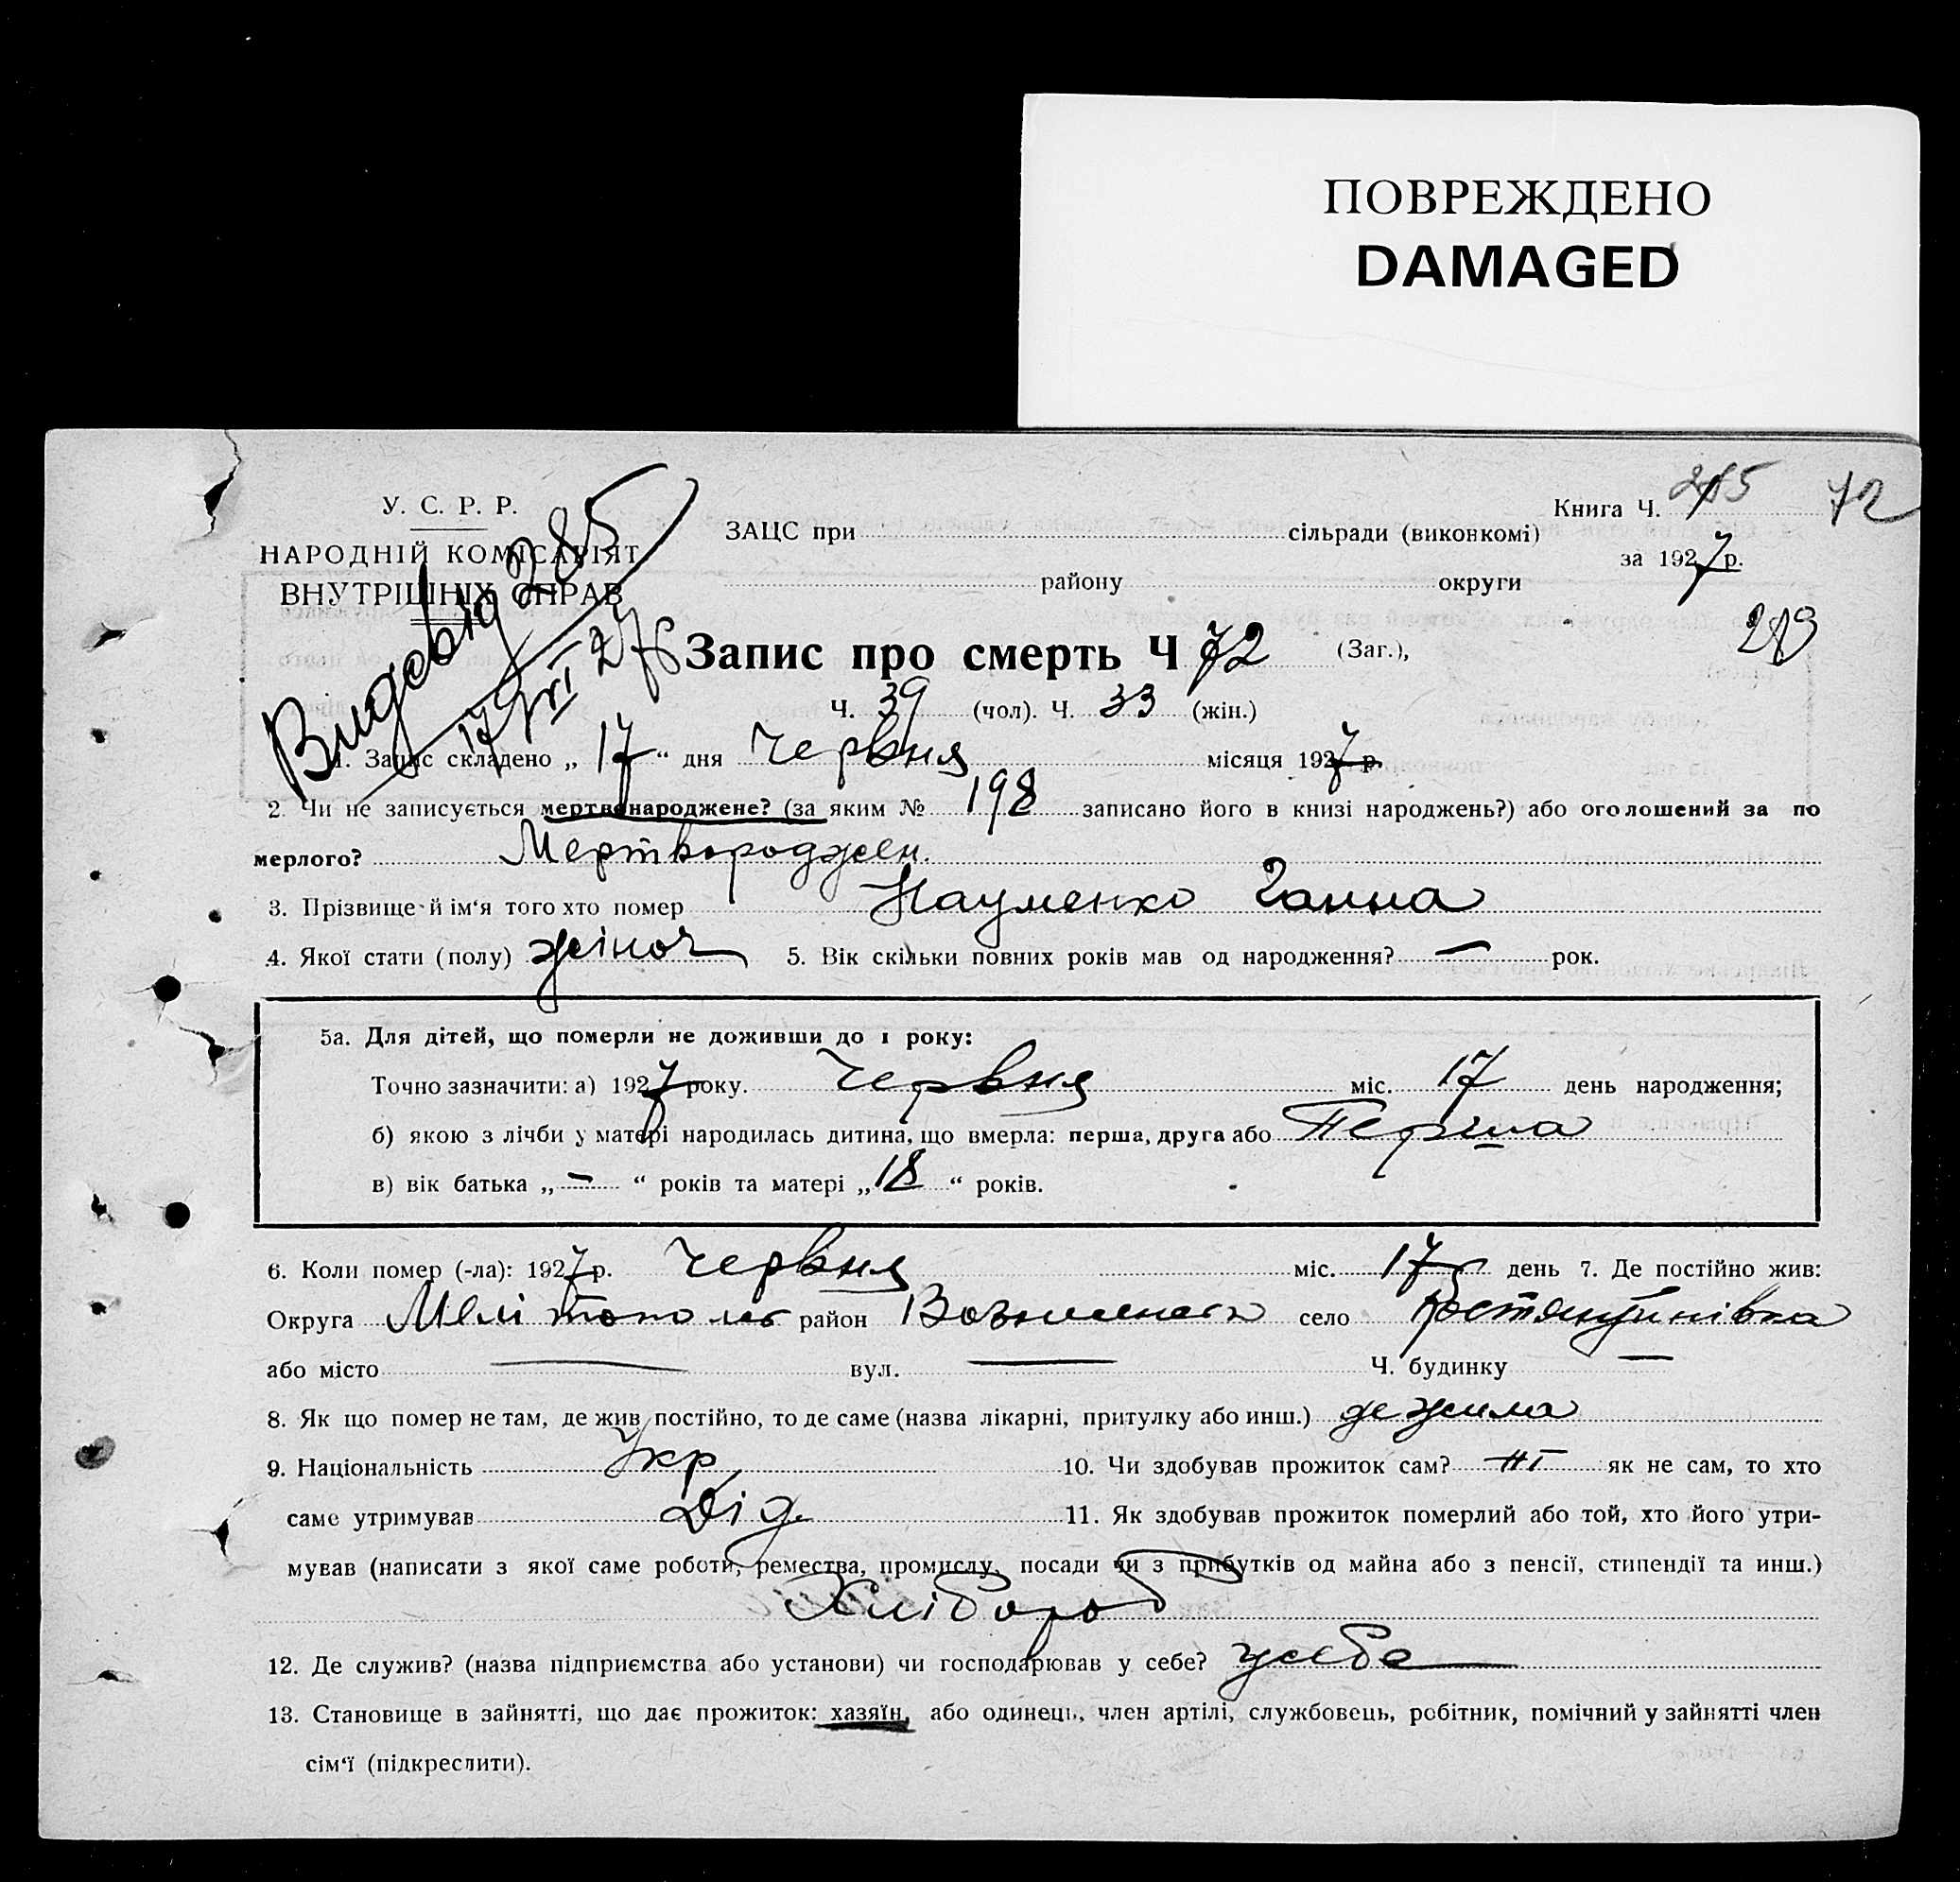 ПОВРЕЖДЕНО
DAMAGED
У. С. Р. Р.
НАРОДНІЙ КОМІСАРІЯТ
ВНУТРІШНІХ СПРАВ
ЗАЦС при сільради (виконкомі)
району округи
Книга Ч. 72
за 1927 р.
285
17/VI 27
Запис про смерть Ч 72 (Заг.),
Ч. 39 (чол). Ч. 33 (жін.)
1. Запис складено „ 17 “ дня Червня місяця 1927 р.
2. Чи не записується мертвонароджене? (за яким № 198 записано його в книзі народжень?) або оголошений за по
мерлого? Мертвороджен.
3. Прізвище й ім‘я того хто помер Науменко Ганна
4. Якої стати (полу) жіноч 5. Вік скільки повних років мав од народження? — рок.
5а. Для дітей, що померли не доживши до 1 року:
Точно зазначити: а) 1927 року. Червня міс. 17 день народження;
б) якою з лічби у матері народилась дитина, що вмерла: перша, друга або Перша
в) вік батька „ — “ років та матері „ 18 “ років.
6. Коли помер (-ла): 1927 р. Червня міс. 17 день 7. Де постійно жив:
Округа Мелітополь район Вознесенськ село Костянтинівка
або місто — вул. — Ч. будинку —
8. Як що помер не там, де жив постійно, то де саме (назва лікарні, притулку або инш.) де жила
9. Національність Укр 10. Чи здобував прожиток сам? ні як не сам, то хто
саме утримував Дід 11. Як здобував прожиток померлий або той, хто його утри-
мував (написати з якої саме роботи, ремества, промислу, посади чи з прибутків од майна або з пенсії, стипендії та инш.)
Хлібороб
12. Де служив? (назва підприємства або установи) чи господарював у себе? у себе
13. Становище в зайнятті, що дає прожиток: хазяїн, або одинець, член артілі, службовець, робітник, помічний у зайнятті член
сім‘ї (підкреслити).